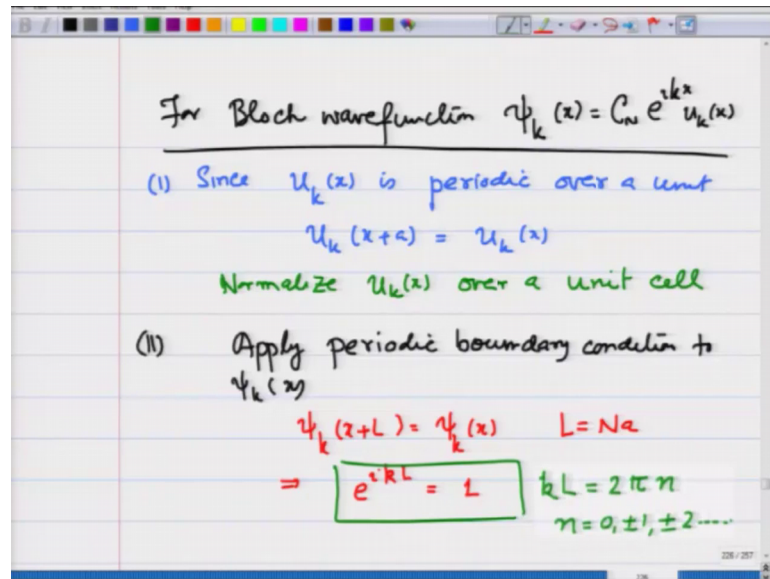 For Bloch wavefunction ψ_k (x) = C_N e^{ikx} u_k(x)
(I) Since u_k(x) is periodic over a unit
u_k (x+a) = u_k(x)
Normalize u_k(x) over a unit cell
(II) Apply periodic boundary condition to
ψ_k(x)
ψ_k (x+L) = ψ_k(x) L = Na
⇒ e^{ikL} = 1 kL = 2πn
n = 0, ±1, ±2 ....
226 / 257